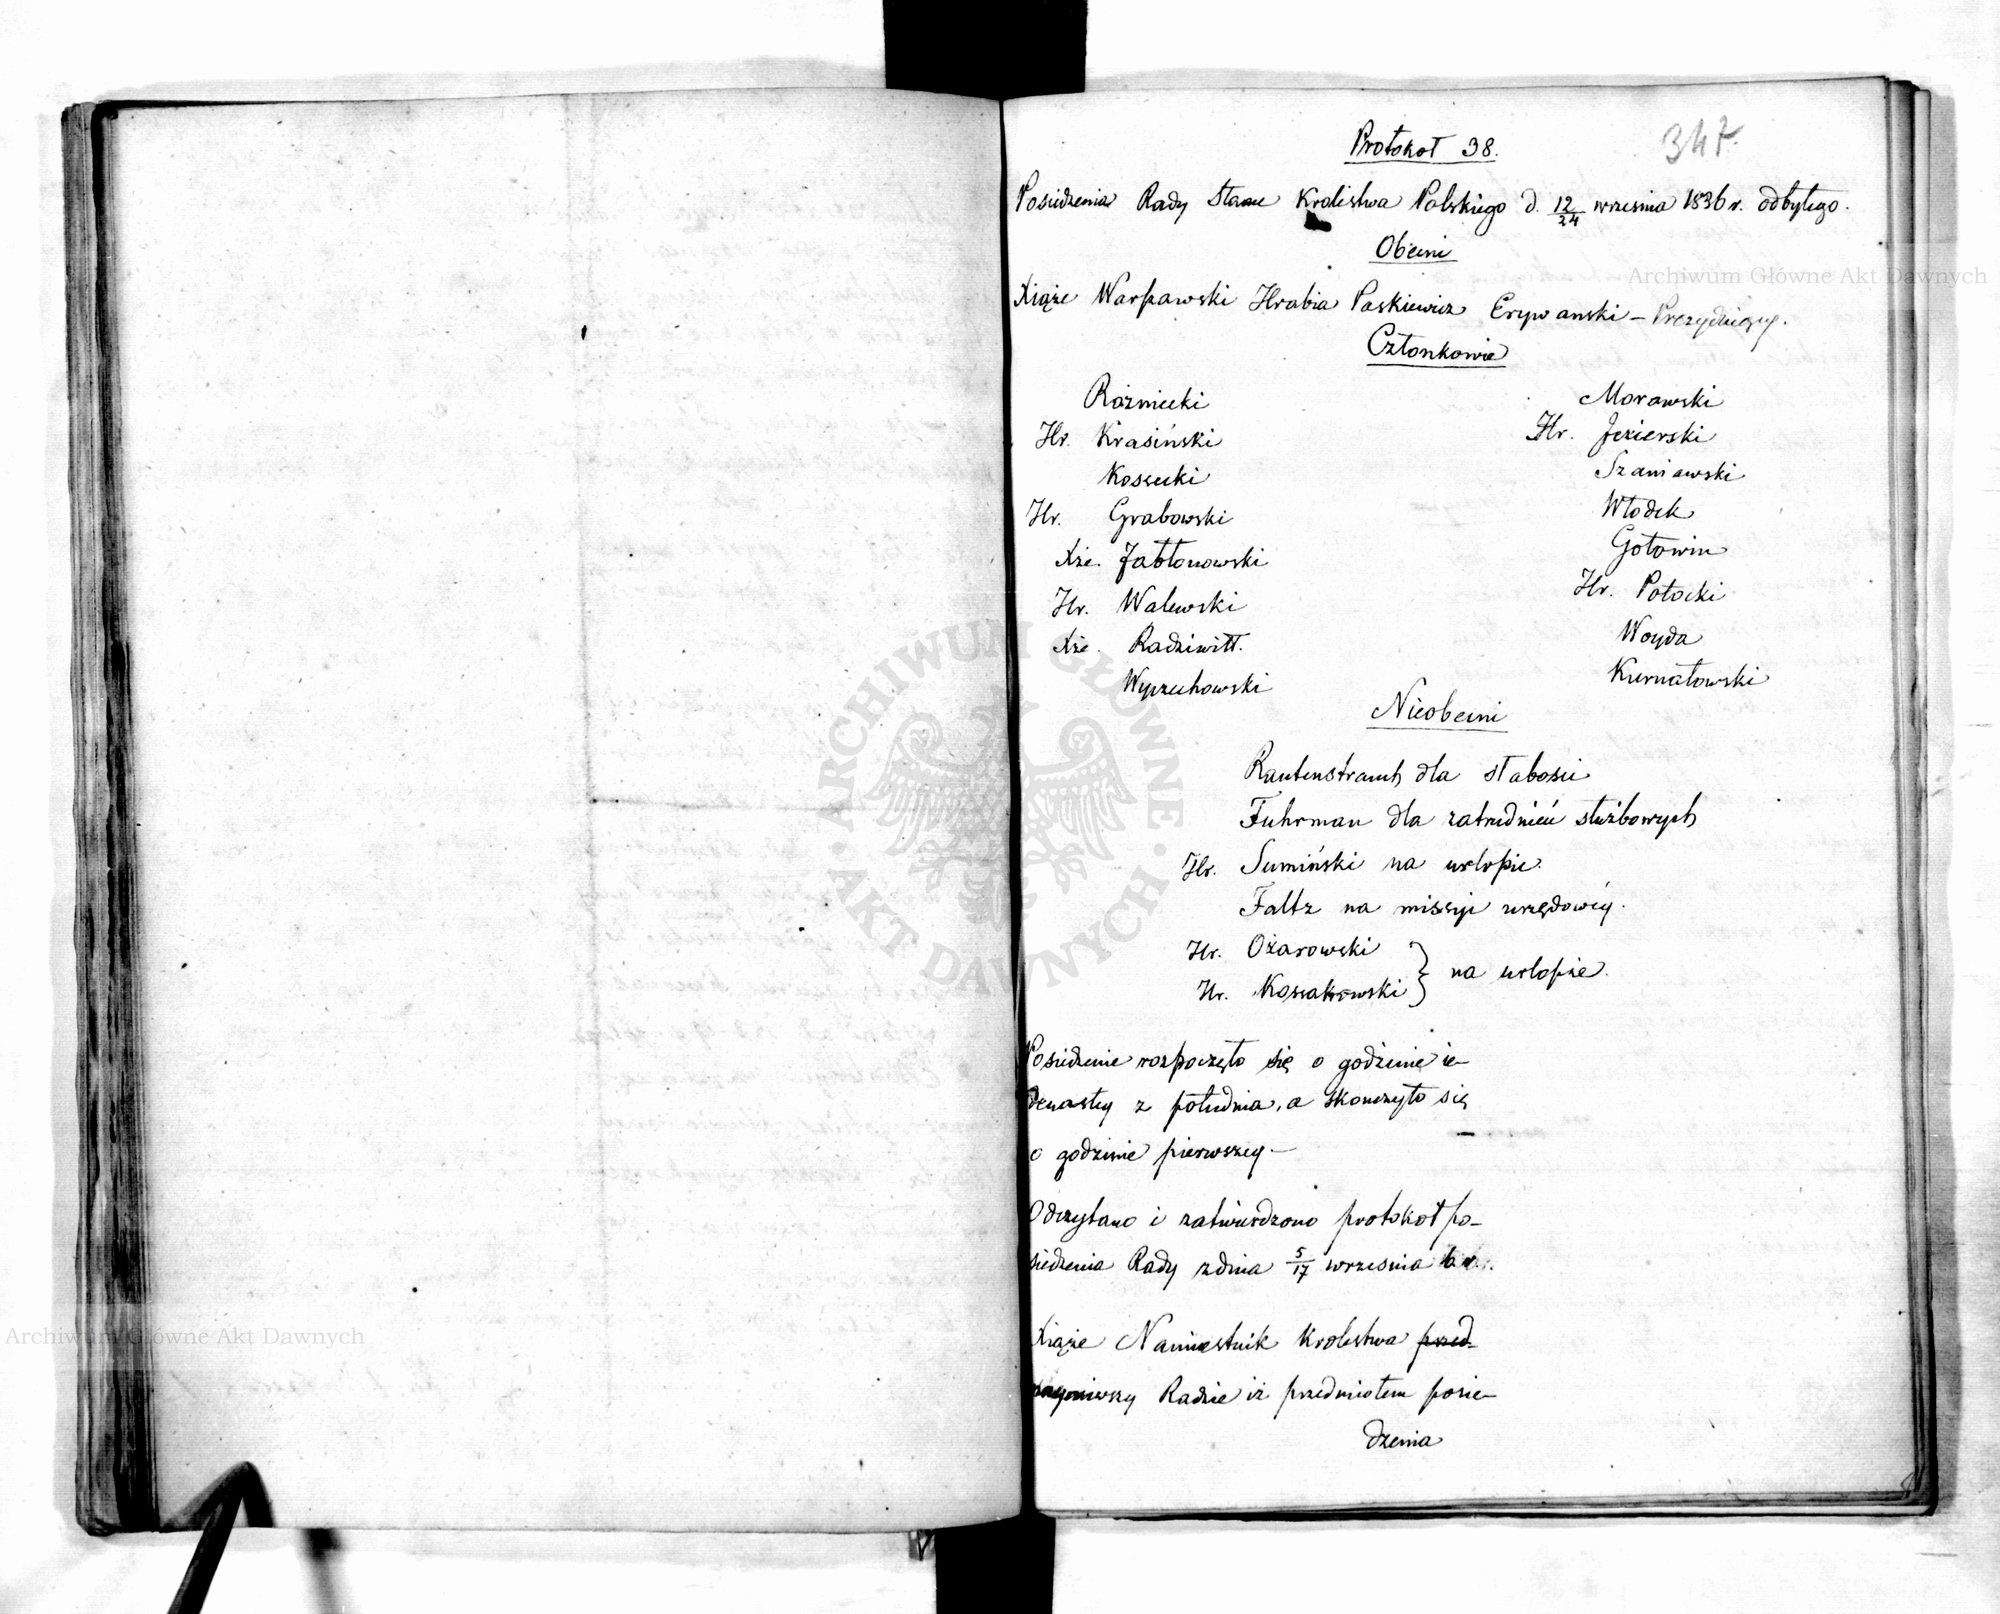 Protokół 38.
347.
Posiedzenia Rady Stanu Krolestwa Polskiego d. 12/24 wrzesnia 1836 r. odbytego.
Obecni
Xiąże Warszawski Hrabia Paskiewicz Erywanski – Prezydujący.
Członkowie
Rożniecki
Hr. Krasiński
Kossecki
Hr. Grabowski
Xże. Jabłonowski
Hr. Walewski
Xże. Radziwiłł.
Wyczechowski
Morawski
Hr. Jezierski
Szaniawski
Włodek
Gołowin
Hr. Potocki
Woyda
Kurnatowski
Nieobecni
Rautenstrauch dla słabosci
Fuhrman dla zatrudnień służbowych
Hr. Sumiński na urlopie.
Faltz na missyi urzędowéy.
Hr. Ożarowski
Hr. Kossakowski
na urlopie.
Posiedzenie rozpoczęło się o godzinie ie-
denastey z południa, a skonczyło się
o godzinie pierwszey –
Odczytano i zatwierdzono protokół po-
siedzenia Rady z dnia 5/17 wrzesnia b. r.
Xiąże Namiestnik Krolestwa przed-
Radzie iż przedmiotem posie-
dzenia
Archiwum Główne Akt Dawnych
ARCHIWUM GŁÓWNE AKT DAWNYCH
Archiwum Główne Akt Dawnych